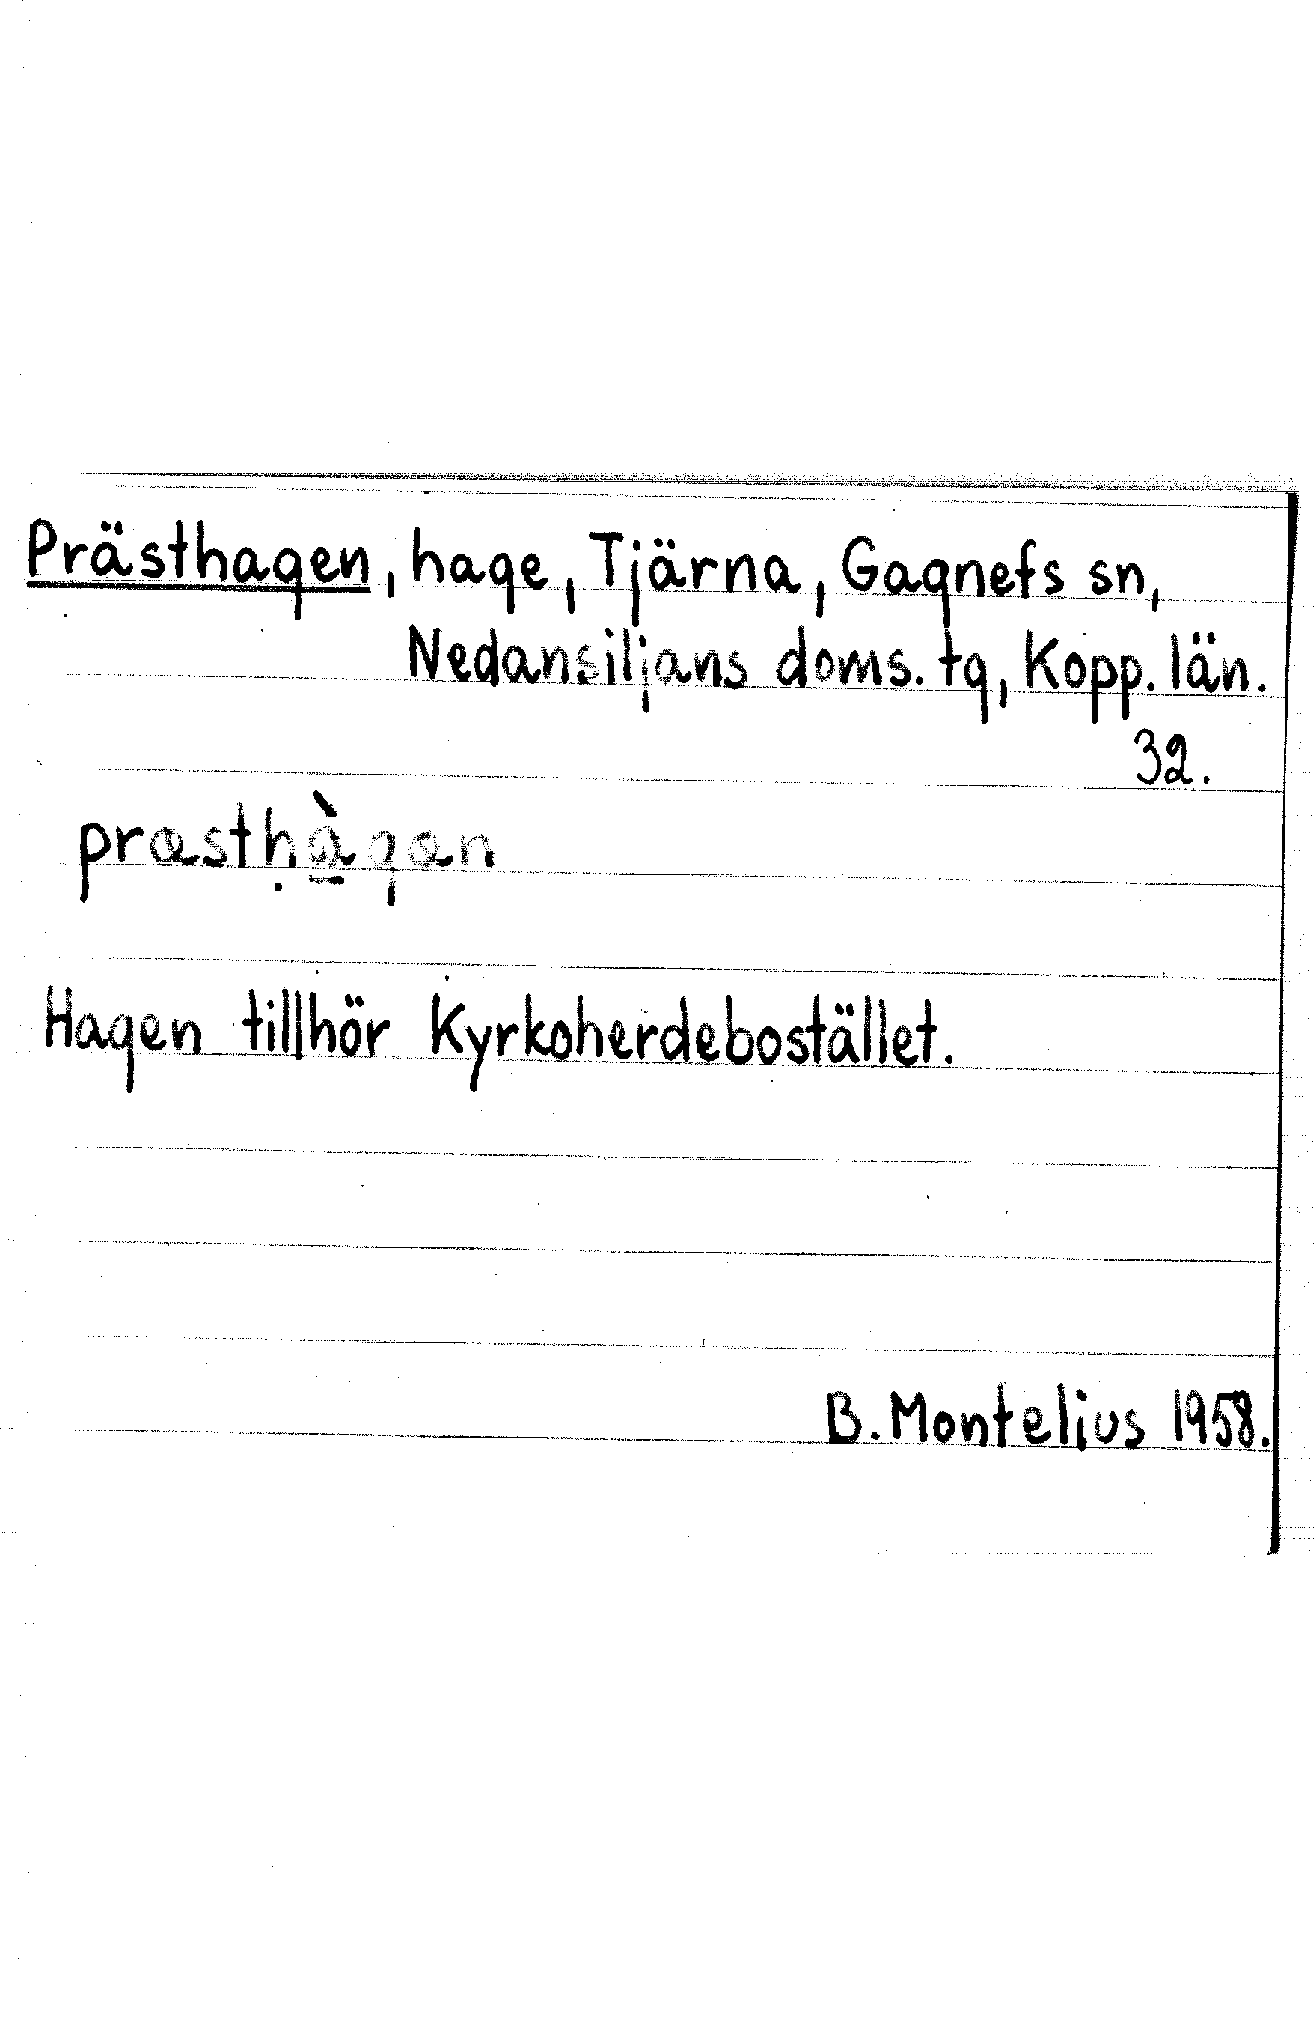 Prästhagen, hage, Tjärna, Gagnefs sn,
Nedansiljans doms. tg, Kopp. län.
32.
præstḥà̱gan
Hagen tillhör Kyrkoherdebostället.
B. Montelius 1958.